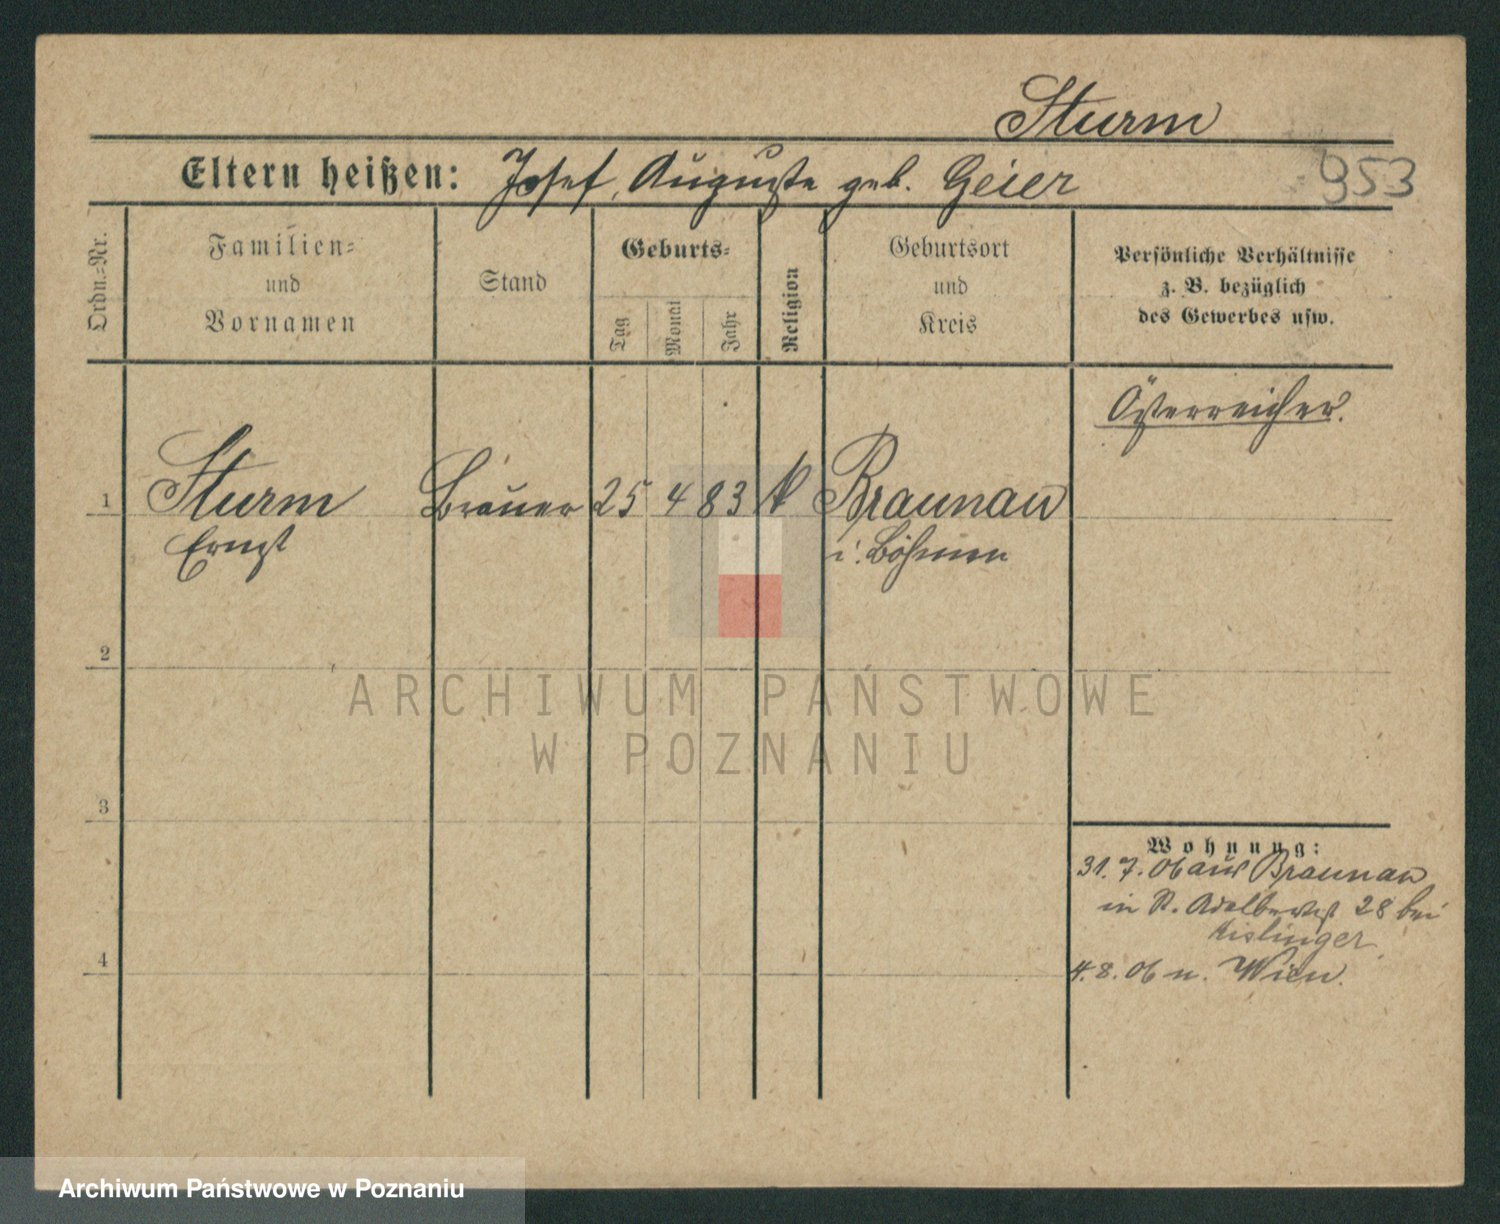 Sturm
953
Eltern heißen: Josef, Auguste geb. Geier
Ordn.=Nr.
Familien=
und
Vornamen
Stand
Geburts=
Tag
Monat
Jahr
Religion
Geburtsort
und
Kreis
Persönliche Verhältnisse
z. B. bezüglich
des Gewerbes usw.
Österreicher.
1 Sturm Brauer 25 4 83 k Braunau
Ernst i. Böhmen
2
3
4
Wohnung:
31. 7. 06 aus Braunau
in St. Adalbertst 28 bei
Kislinger
4. 8. 06 n. Wien.
ARCHIWUM PAŃSTWOWE
W POZNANIU
Archiwum Państwowe w Poznaniu